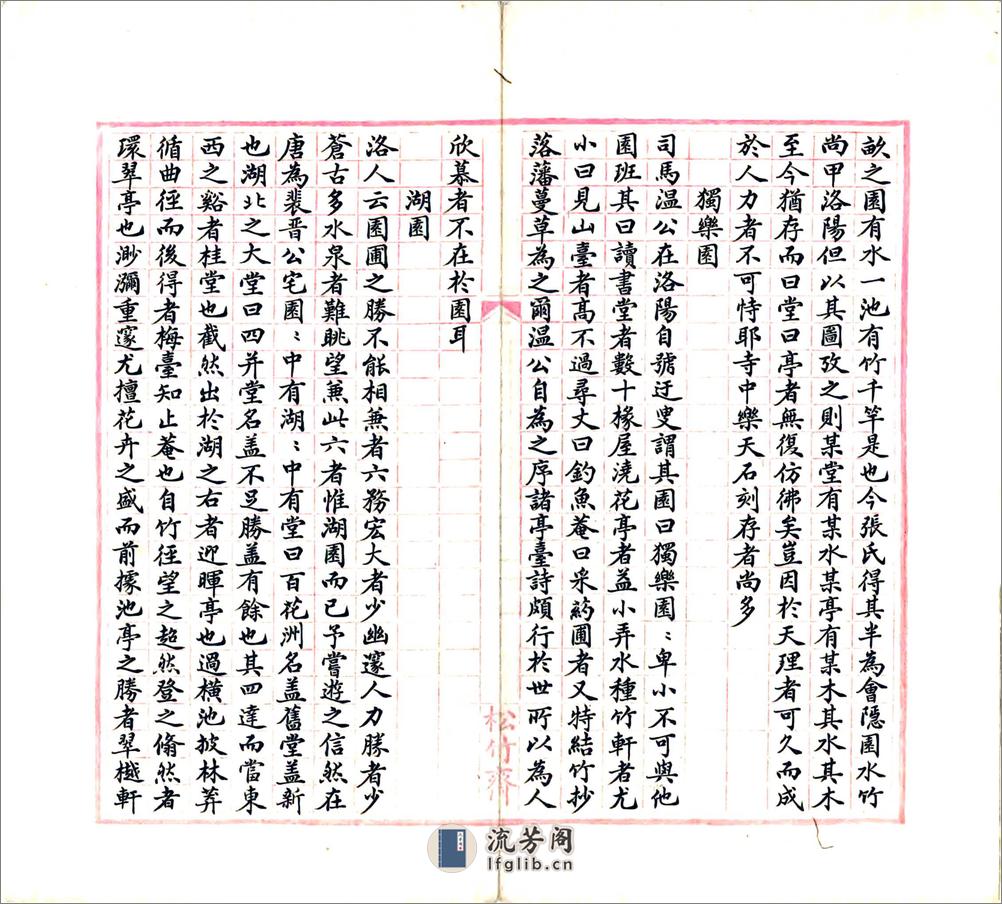 畝之園有水一池有竹千竿是也今張氏得其半為會隱園水竹
尚甲洛陽但以其圖攷之則某堂有某水某亭有某木其水其木
至今猶存而曰堂曰亭者無復仿彿矣豈因於天理者可久而成
於人力者不可恃耶寺中樂天石刻存者尚多
獨樂園
司馬溫公在洛陽自號迂叟謂其園曰獨樂園〻卑小不可與他
園班其曰讀書堂者數十椽屋澆花亭者益小弄水種竹軒者尤
小曰見山臺者高不過尋丈曰釣魚菴曰采葯圃者又特結竹抄
落藩蔓草為之爾溫公自為之序諸亭臺詩頗行於世所以為人
欣慕者不在於園耳
湖園
洛人云園圃之勝不能相兼者六務宏大者少幽邃人力勝者少
蒼古多水泉者難眺望兼此六者惟湖園而已予嘗遊之信然在
唐為裴晉公宅園〻中有湖〻中有堂曰百花洲名盖舊堂盖新
也湖北之大堂曰四并堂名盖不足勝盖有餘也其四達而當東
西之谿者桂堂也截然出於湖之右者迎暉亭也過橫池披林莽
循曲徑而後得者梅臺知止菴也自竹徑望之超然登之翛然者
環翠亭也渺瀰重邃尤擅花卉之盛而前據池亭之勝者翠樾軒
松竹齋
流芳阁
lfglib.cn